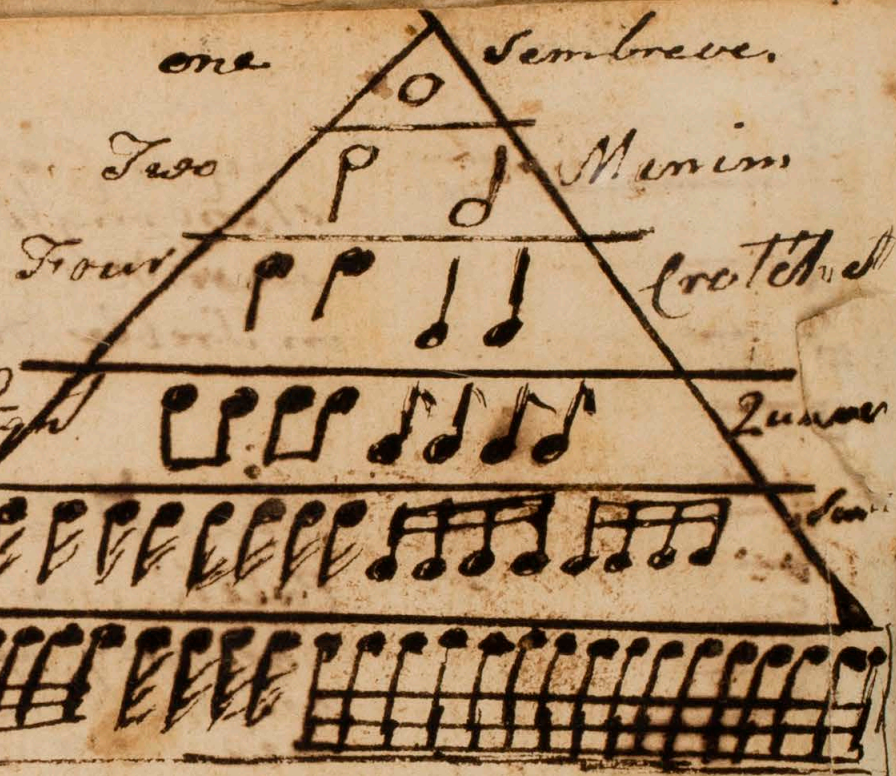 one Sembreve.
Two Minim
Four Crotchet
Quaver